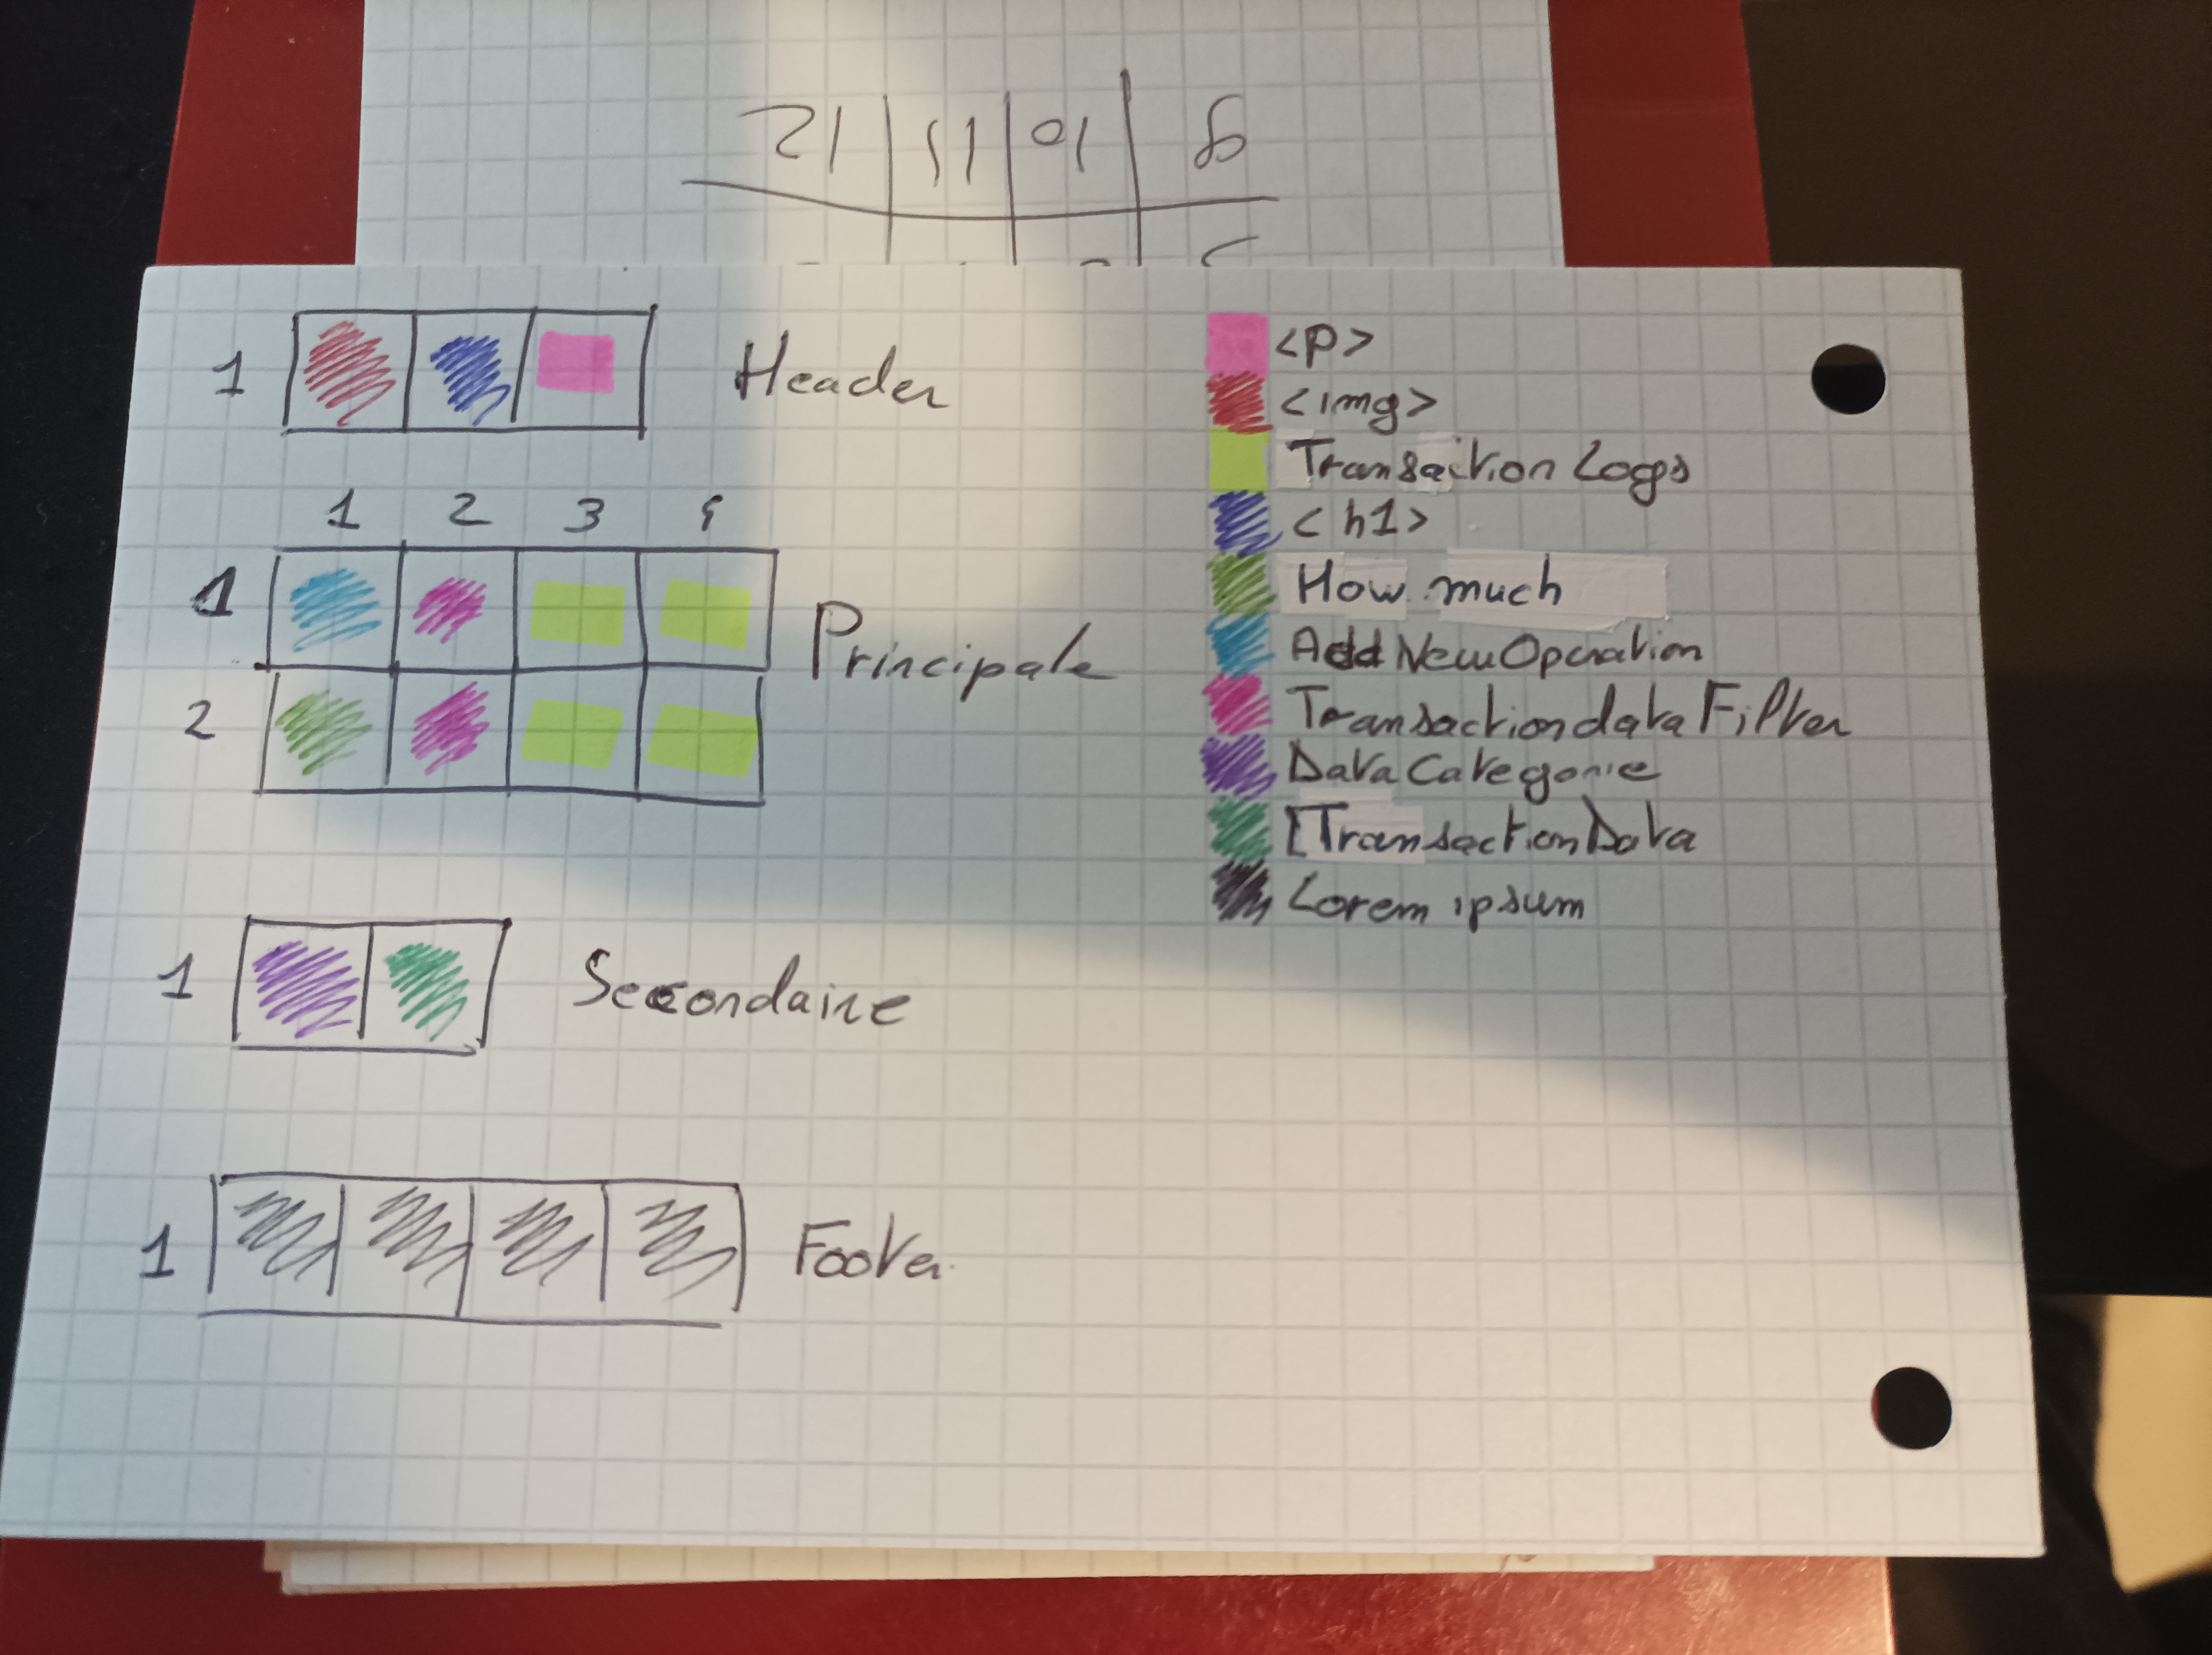 12 | 11 | 10 | 8
1 Header
1 2 3 4
1 Principale
2
1 Secondaire
1 Footer
<p>
<img>
Transaction Logs
<h1>
How much
Add New Operation
TransactiondataFilter
DataCategorie
[TransactionData
Lorem ipsum